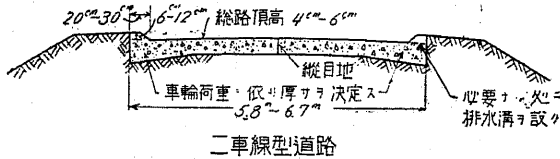 20cm-30cm 6-12cm 総路頂高 4cm-6cm
縦目地
車輪荷重ニ依リ厚サヲ決定ス
5.8m-6.7m
必要ナル処ニ
排水溝ヲ設ク
二車線型道路